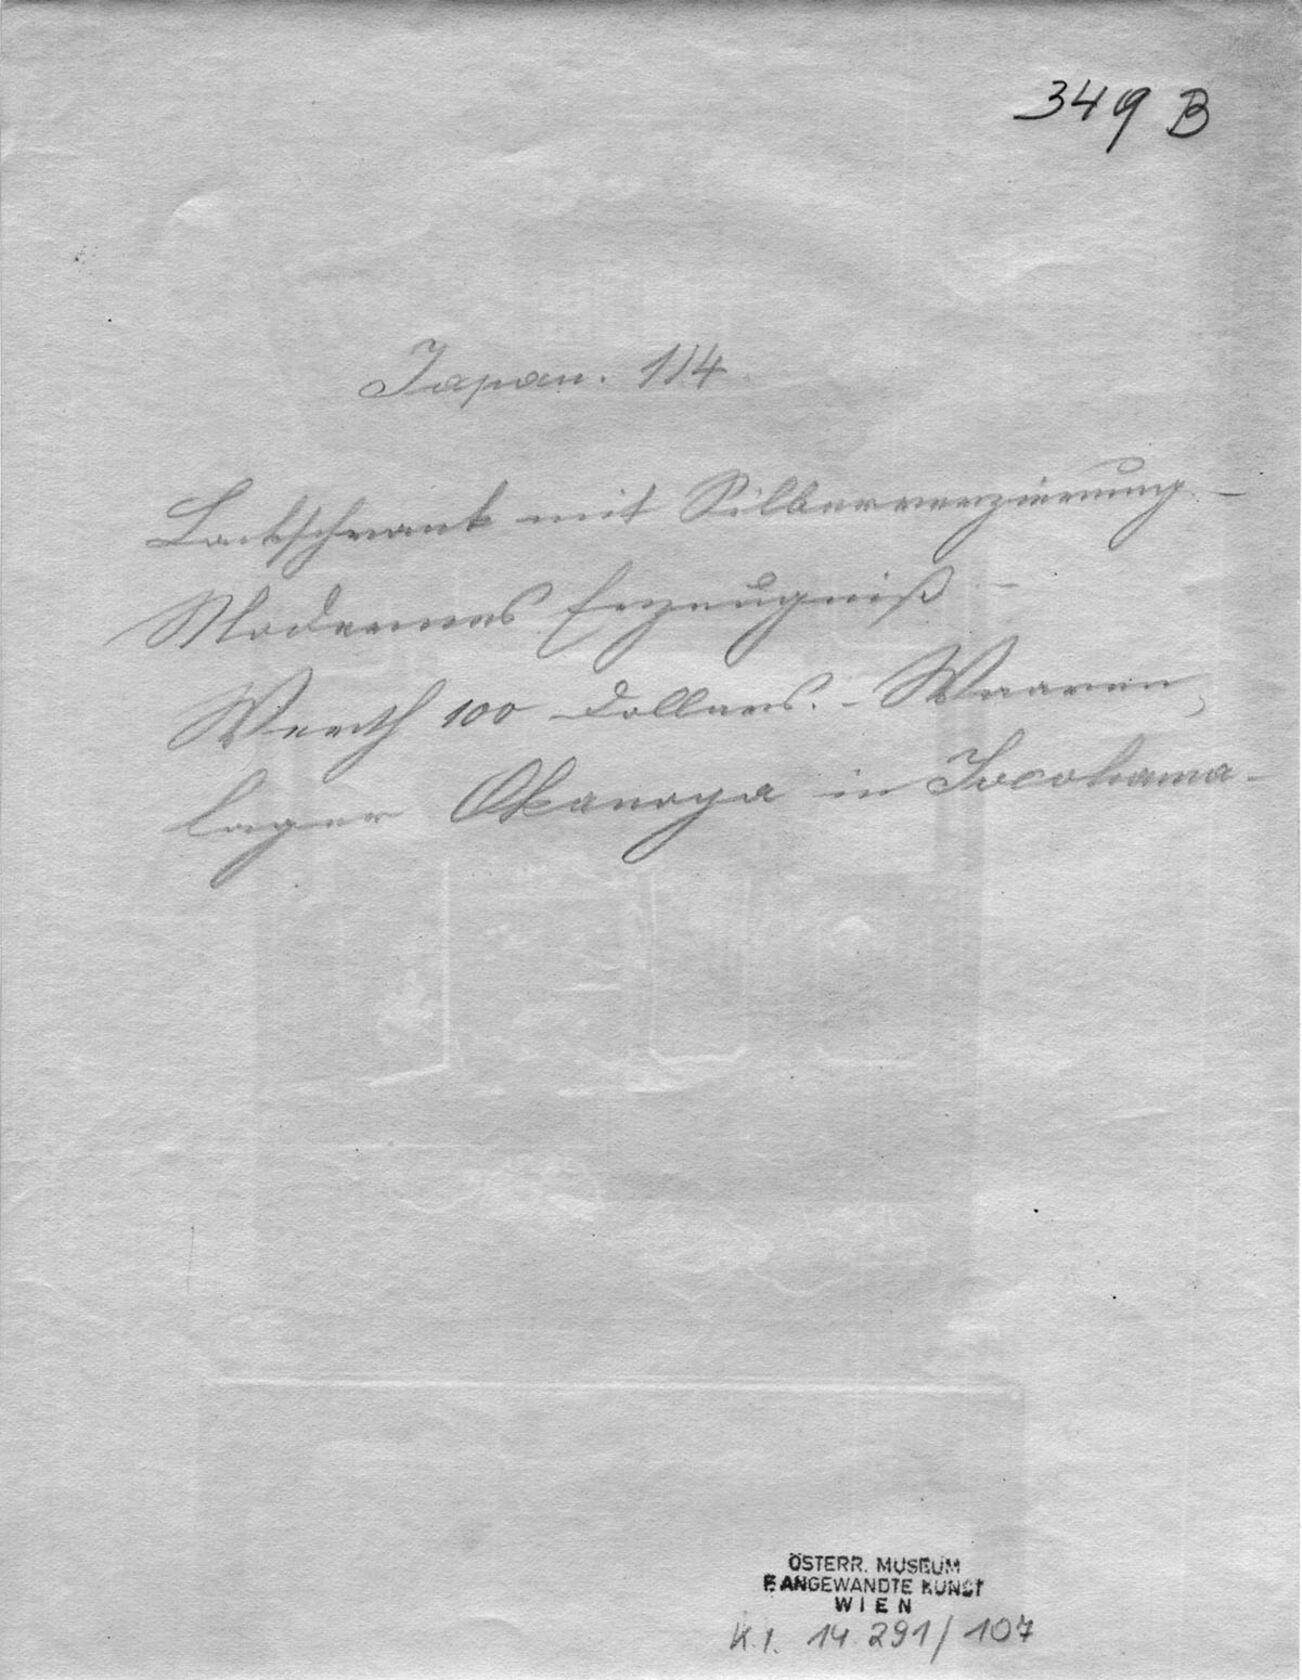 349 B
Japan. 114
Lackschrank mit Silberverzierung –
Modernes Erzeugniß –
Werth 100 Dollars. – Waaren-
lager Okanoya in Jocohama –
ÖSTERR. MUSEUM
F. ANGEWANDTE KUNST
WIEN
K.I. 14.291/107